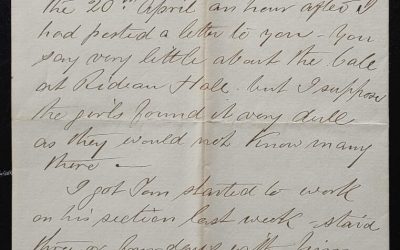 the 20th April an hour after I
had posted a letter to you - You
say very little about the Bale
at Rideau Hall - but I suppose
the girls found it very dull
as they would not know many
there -
I got Tom started to work
on his section last week - staid
three or four days with him